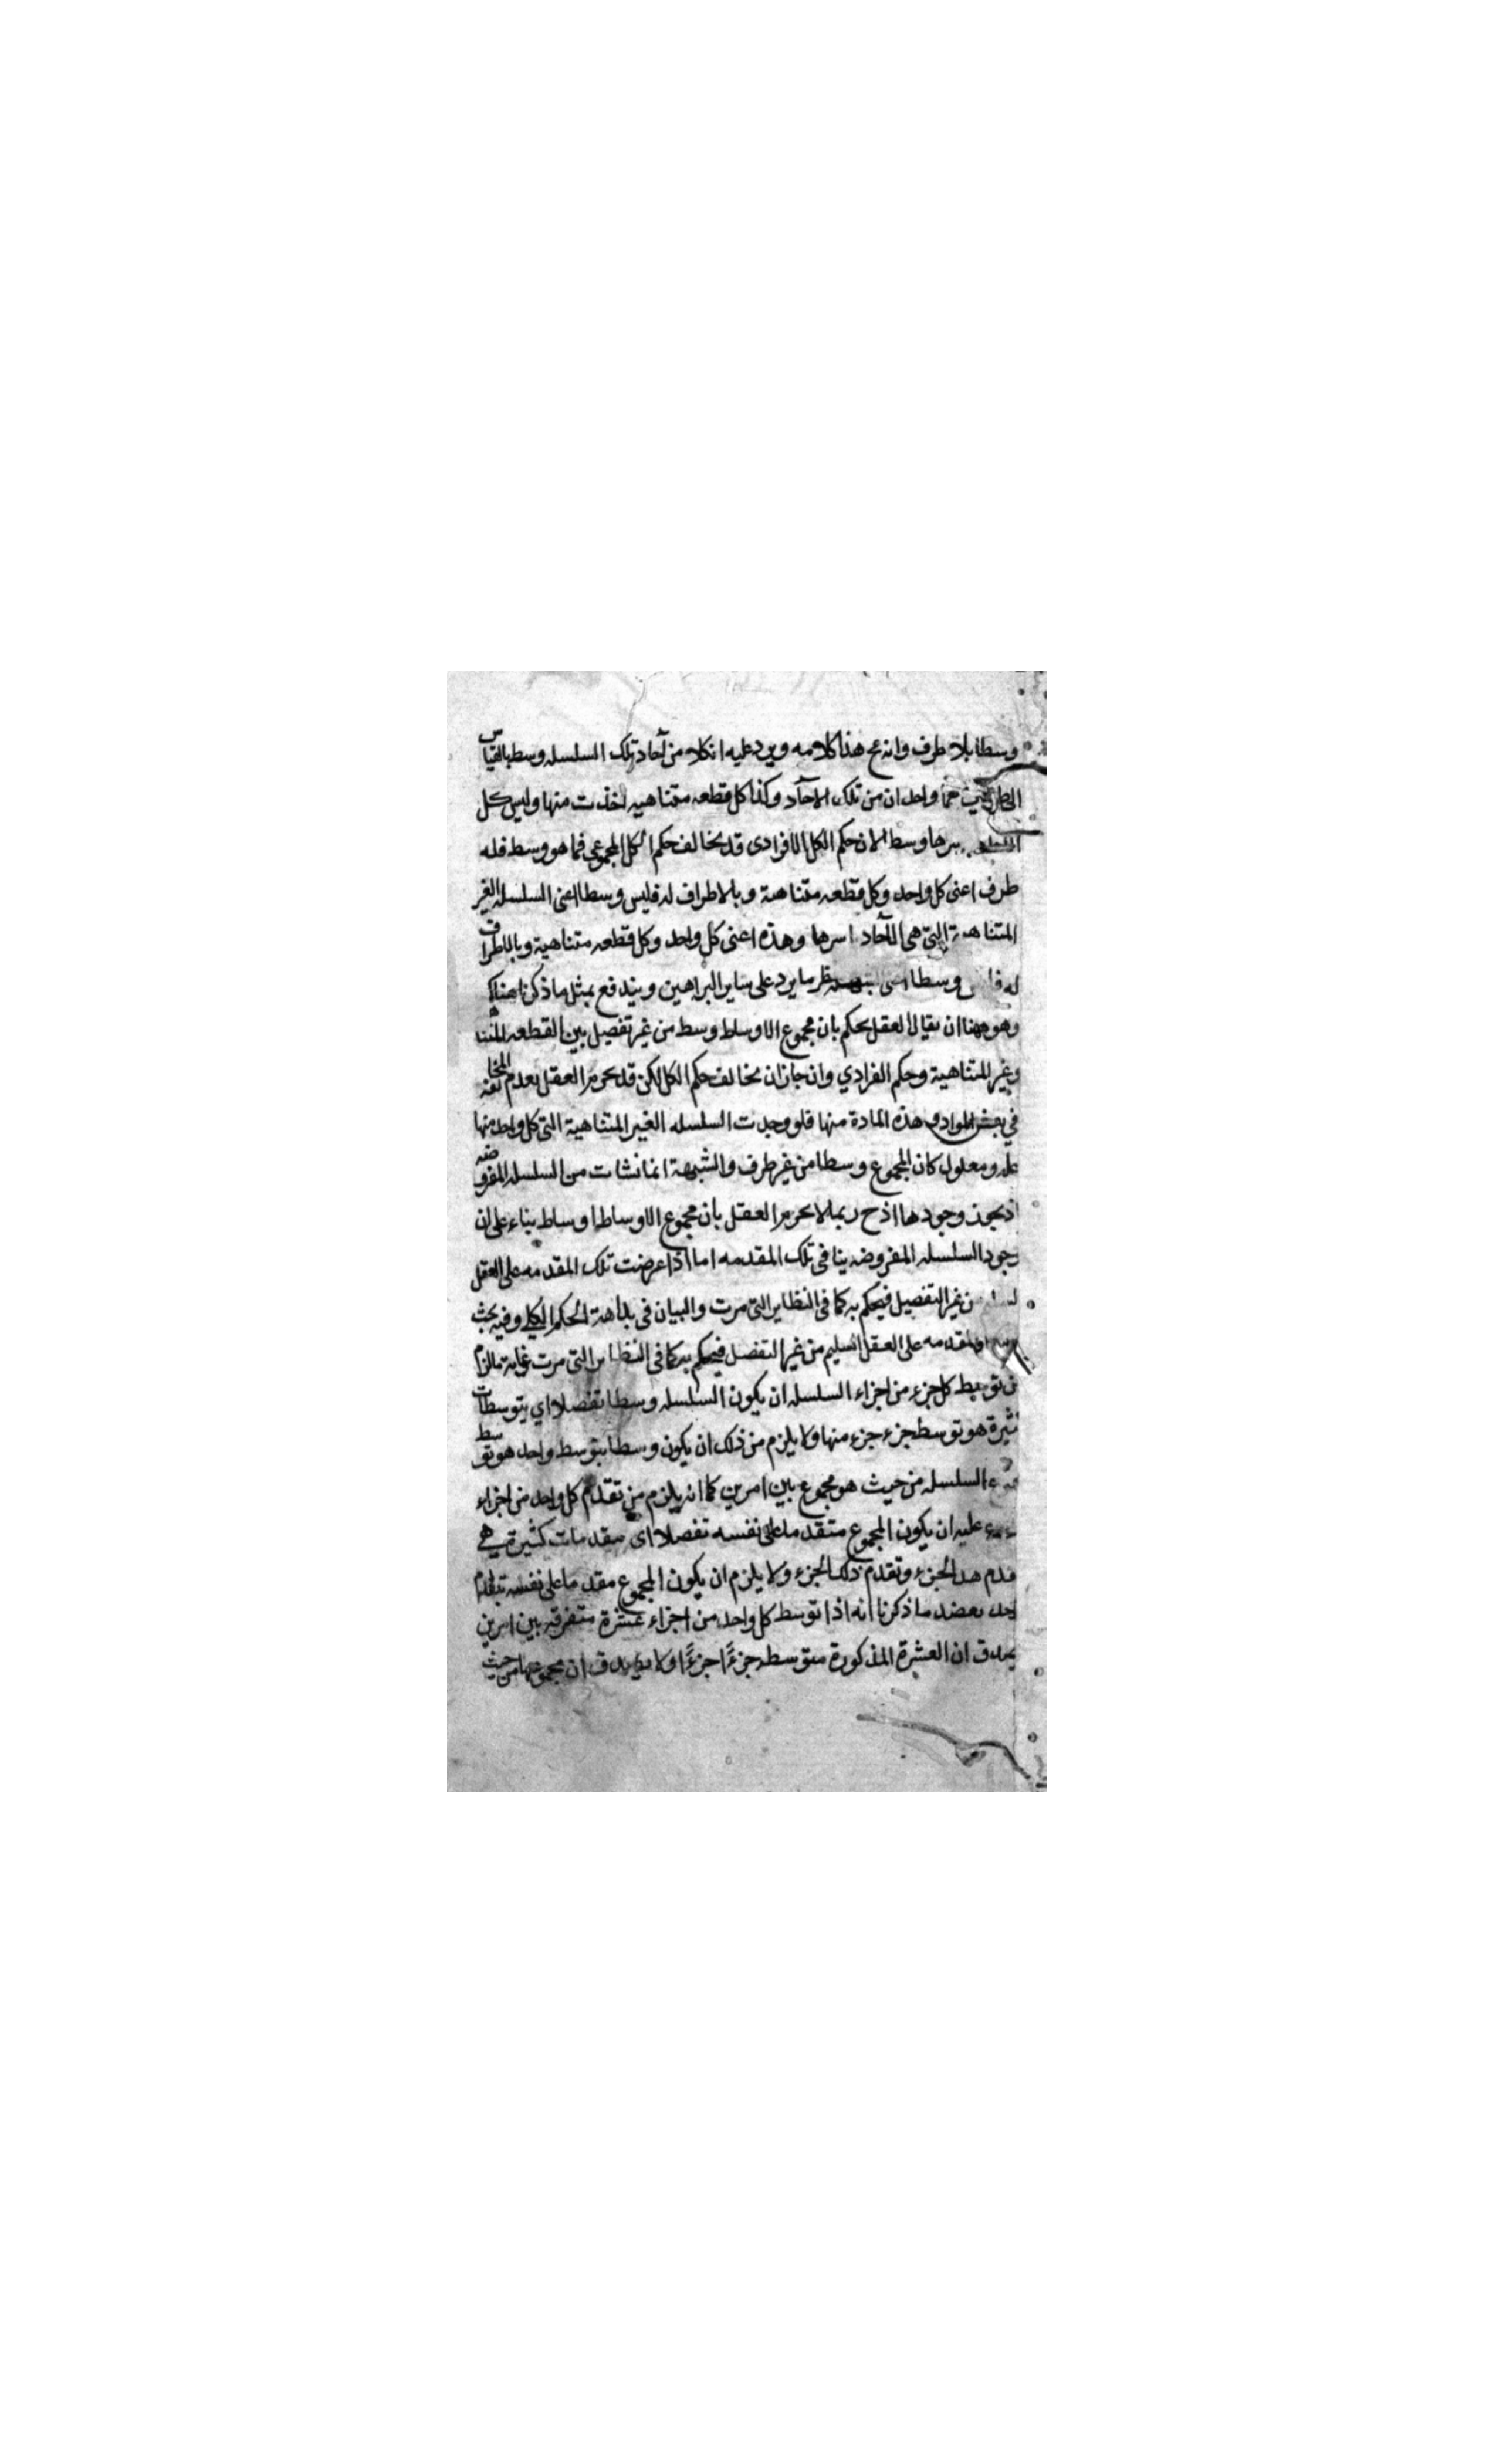 وسطا بلا طرف وانه مح هذا كلامه ويرد عليه ان كلا من آحاد تلك السلسله وسط بالقياس
الى واحدان من تلك الاحآد وكذا كل قطعه متناهيه اخذت منها وليس كل
وسطا لان حكم الكل الافرادى قد يخالف حكم الكل المجموعي فما هو وسط فله
طرف اعنى كل واحد وكل قطعه متناهية وبلا طراف له فليس وسطا اعنى السلسله الغير
المتناهية التي هي الآحاد اسرها وهذه اعنى كل واحد وكل قطعه متناهية وبلا طراف
له وسطا ما يرد على ساير البراهين ويندفع بمثل ما ذكرنا هناك
وهو ههنا ان يقال العقل يحكم بان مجموع الاوساط وسط من غير تفصيل بين القطعه المتنا
وغير المتناهية وحكم الفرادي وان جاز ان يخالف حكم الكل لكن قد يجزم العقل بعدم المخالفه
في بعض المواد وهذه المادة منها فلو وجدت السلسله الغير المتناهية التى كل واحد منها
علة ومعلول كان المجموع وسطا من غير طرف والشبهة انما نشات من السلسله المفروضه
اذ يجوز وجودها اذ ح ربما لا يجزم العقل بان مجموع الاوساط اوساط بناء على ان
وجود السلسله المفروضه ينافى تلك المقدمه اما اذا عرضت تلك المقدمه على العقل
من غير التفصيل فيحكم به كما فى النظاير التى مرت والبيان فى بداهة الحكم الكلي وفيه بحث
المقدمه على العقل السليم من غير التفصل فيحكم به كما فى النظاير التى مرت غاية ما لزم
من توسط كل جزء من اجزاء السلسله ان يكون السلسله وسطا تفصلا اي بتوسطات
كثيرة هو توسط جزء جزء منها ولا يلزم من ذلك ان يكون وسطا بتوسط واحد هو توسط
السلسله من حيث هو مجموع بين امرين كما انه يلزم من تقدم كل واحد من اجزاء
عليه ان يكون المجموع متقدما على نفسه تفصلا اى مقدمات كثيرة هي
تقدم هذا الجزء وتقدم ذلك الجزء ولا يلزم ان يكون المجموع مقدما على نفسه بتقدم
واحد يعضد ما ذكرنا انه اذا توسط كل واحد من اجزاء عشرة متفرقه بين امرين
يصدق ان العشرة المذكورة متوسطه جزءًا جزءًا ولا يصدق ان مجموعها من حيث